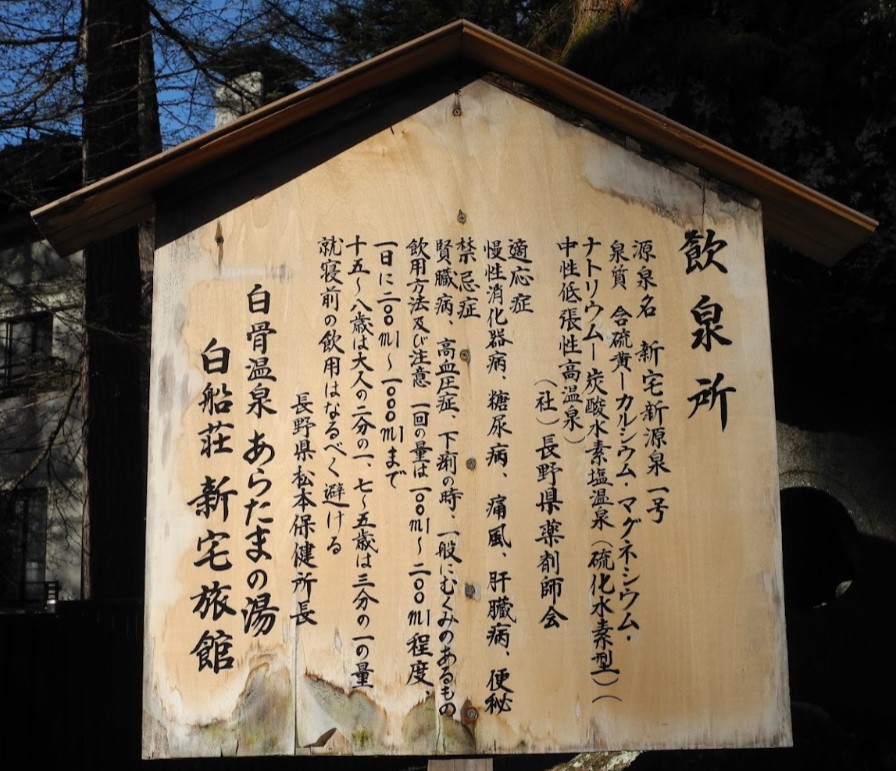 飲泉所
源泉名 新宅新源泉一号
泉質 含硫黄ーカルシウム・マグネシウム・
ナトリウムー炭酸水素塩温泉（硫化水素型）（
中性低張性高温泉）
（社）長野県薬剤師会
適応症
慢性消化器病、糖尿病、痛風、肝臓病、便秘
禁忌症
腎臓病、高血圧症、下痢の時、一般にむくみのあるもの
飲用方法及び注意 一回の量は一〇〇ml〜二〇〇ml程度、
一日に二〇〇ml〜一〇〇〇mlまで
十五〜八歳は大人の二分の一、七〜五歳は三分の一の量
就寝前の飲用はなるべく避ける
長野県松本保健所長
白骨温泉 あらたまの湯
白船荘 新宅旅館